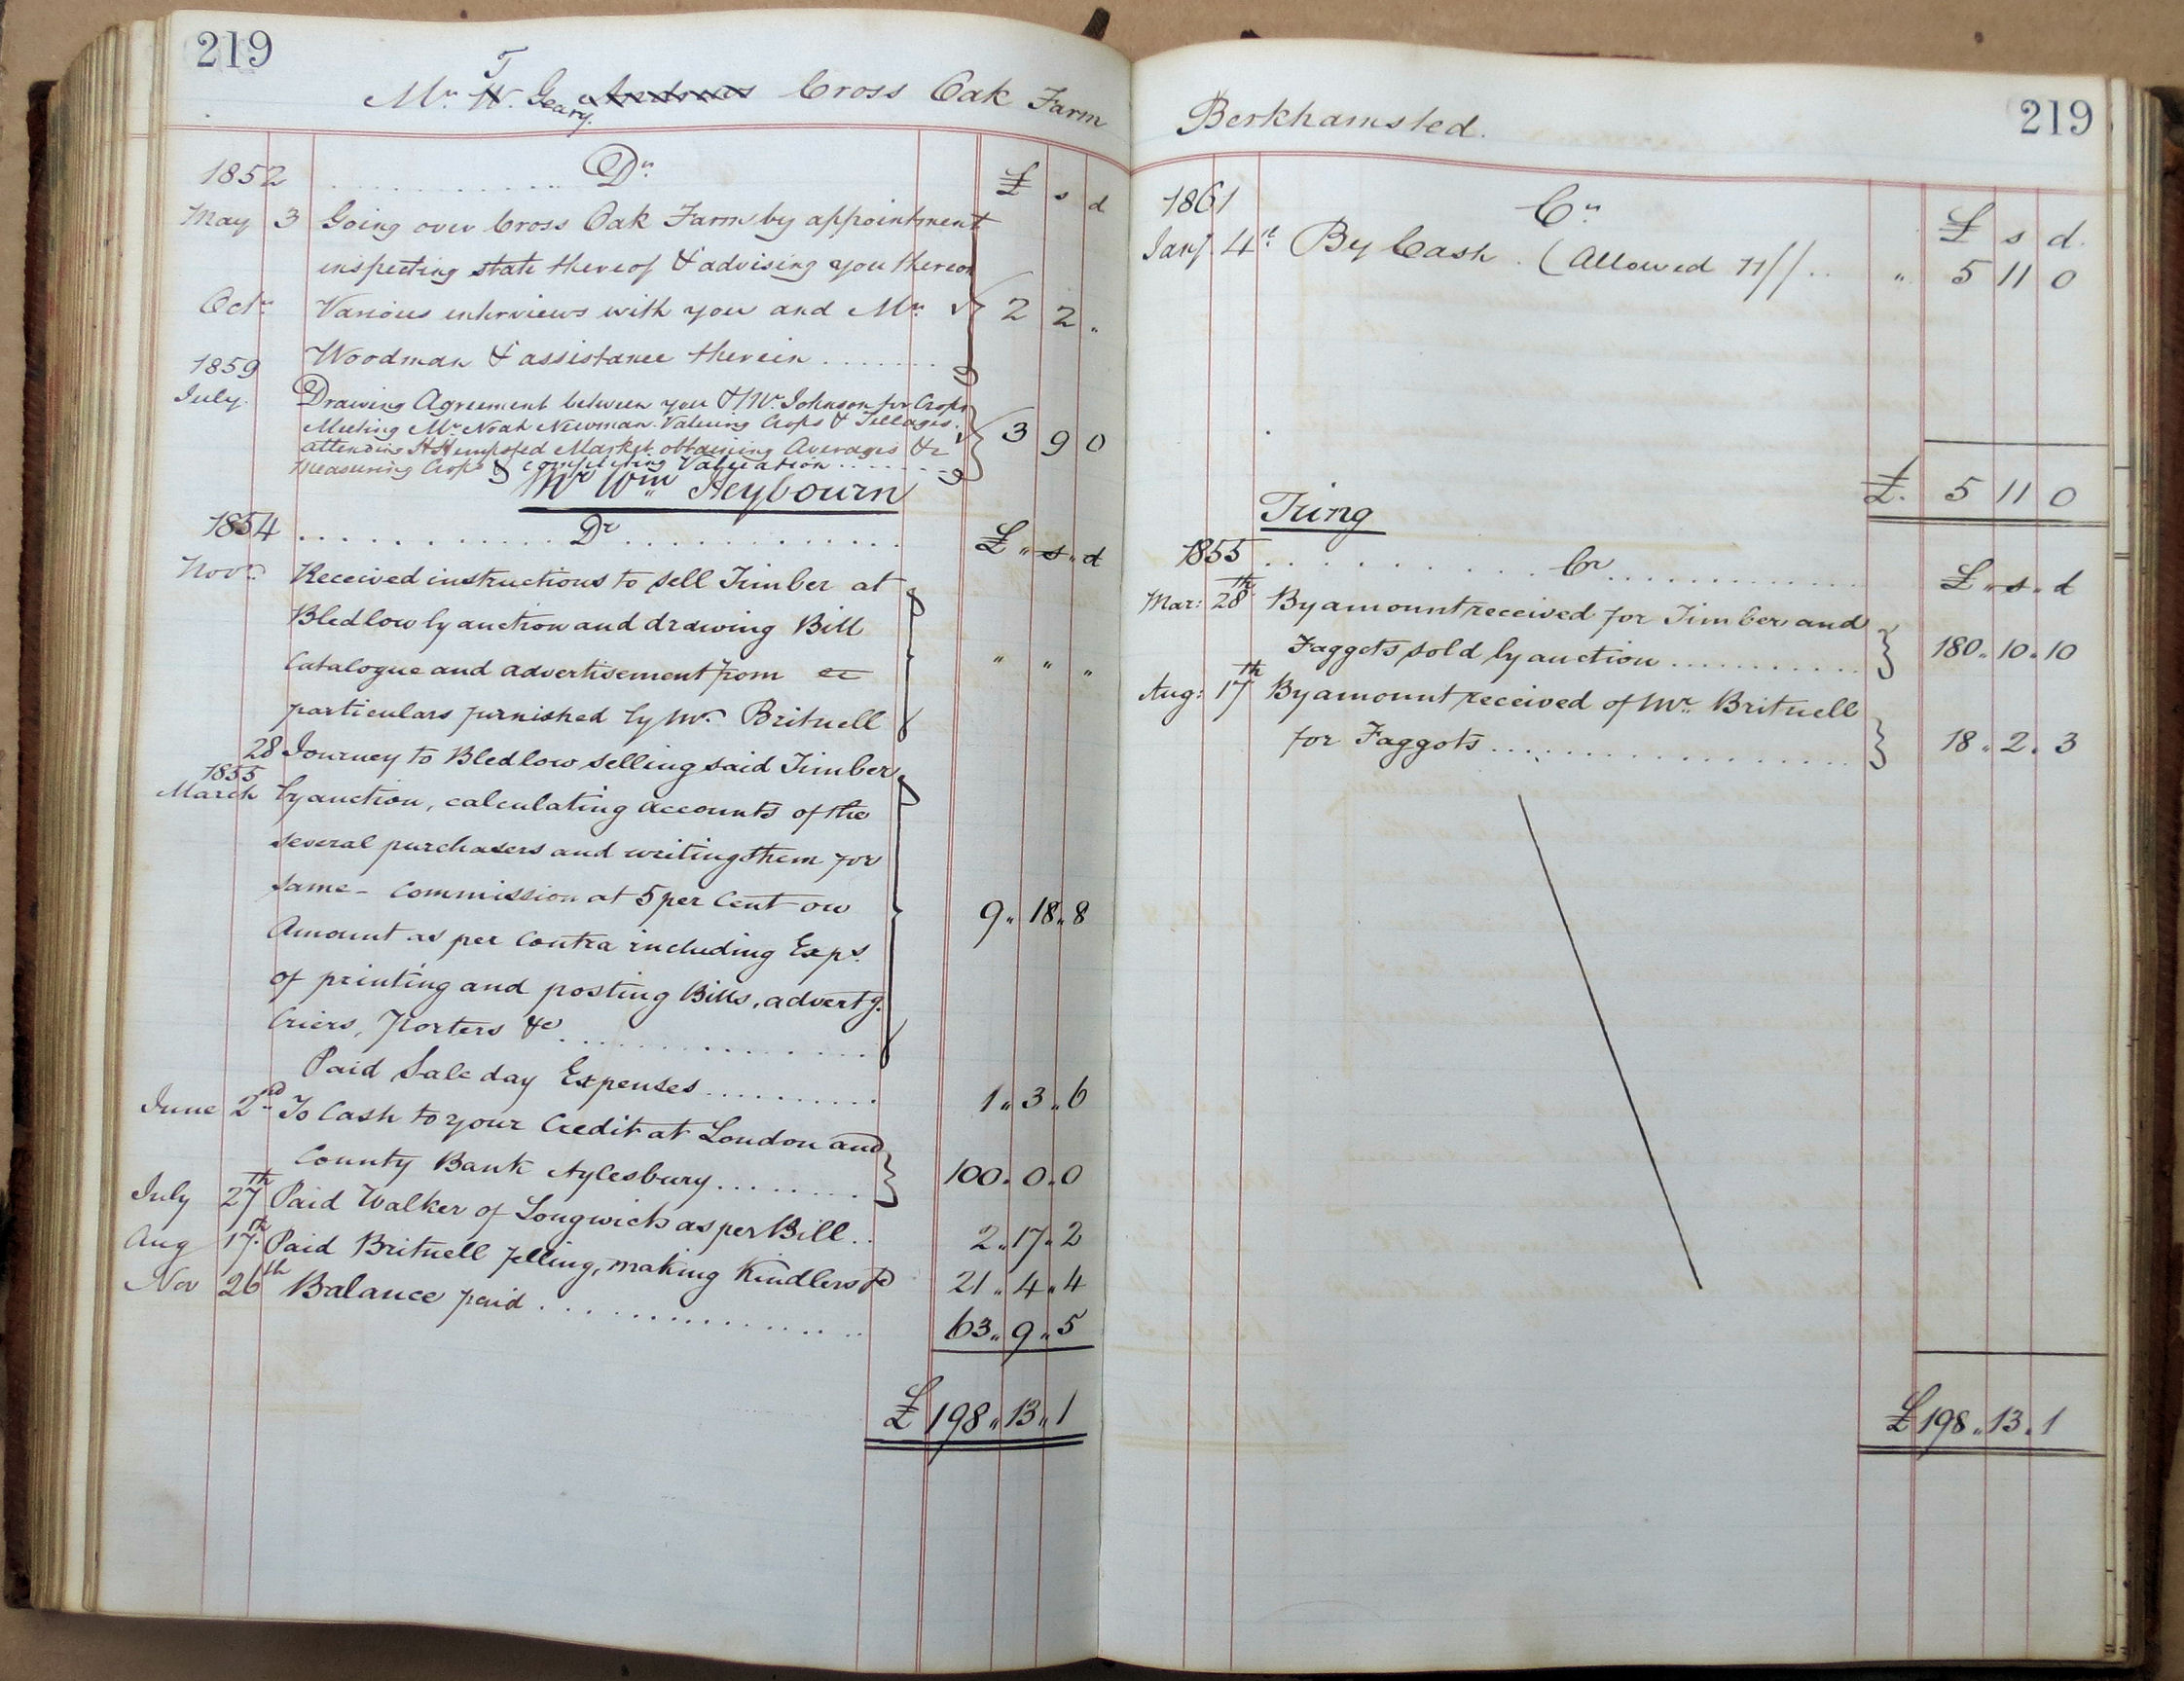 219
Mr. T. W. Geary. Andrews Cross Oak Farm
1852 Dr. £ s d
May 3 Going over Cross Oak Farm by appointment
inspecting state thereof & advising you thereon
Octr. Various interviews with you and Mr. 2 2 "
Woodman & assistance therein
1859
July. Drawing Agreement between you & Mr. Johnson for Crops
Meeting Mr. Noah Newman. Valuing Crops & Tillages. 3 9 0
attending H Hempsted Market obtaining Averages &c
Measuring Crops & completing Valuation
Mr Wm Heybourn
1854 Dr £ " s " d
Novr. Received instructions to sell Timber at
Bledlow by auction and drawing Bill
Catalogue and advertisement from " " "
particulars furnished by Mr. Britnell
28 Journey to Bledlow selling said Timber
1855
March by auction, calculating accounts of the
several purchasers and writing them for
same - Commission at 5 per Cent on
Amount as per Contra including Exps. 9 " 18 " 8
of printing and posting Bills, advertg.
Criers, Porters &c
Paid Sale day Expenses 1 " 3 " 6
June 2nd To Cash to your Credit at London and
County Bank Aylesbury 100 " 0 " 0
July 27th Paid Walker of Longwick as per Bill 2 " 17 " 2
Aug 17th Paid Britnell felling, making Kindlers &c 21 " 4 " 4
Nov 26th Balance paid 63 " 9 " 5
£ 198 " 13 " 1
Berkhamsted. 219
1861 Cr. £ s d.
Jany. 4th By Cash. (Allowed " 5 11 0
£. 5 11 0
Tring
1855 Cr £ " s " d
Mar: 28th By amount received for Timber and
Faggots sold by auction 180 " 10 " 10
Aug: 17th By amount received of Mr. Britnell
for Faggots 18 " 2 " 3
£ 198 " 13 " 1